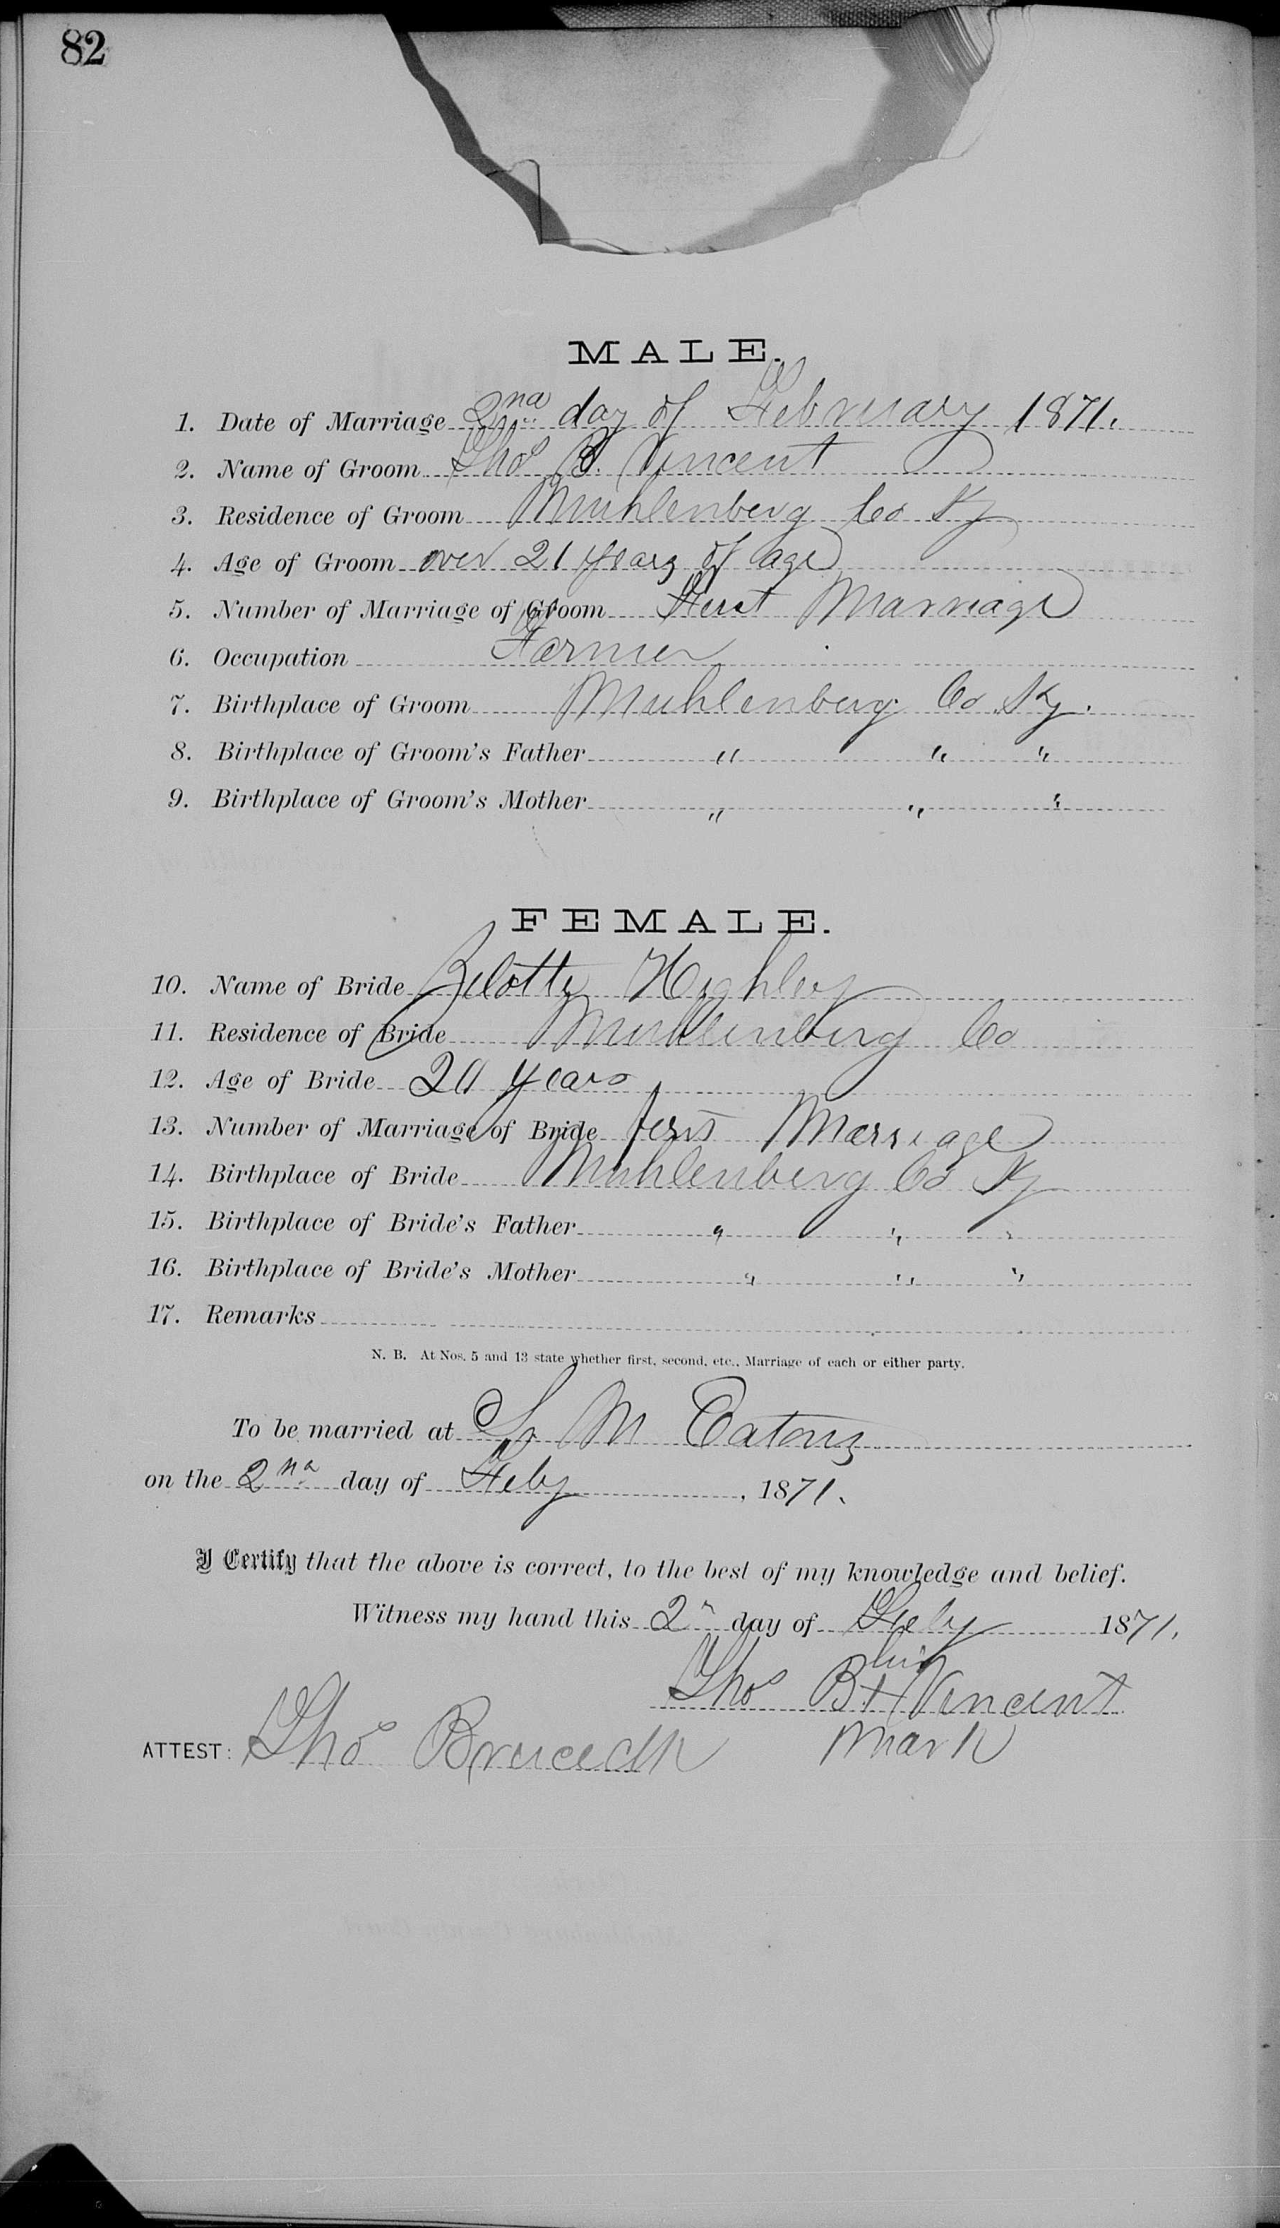 82
MALE.
1. Date of Marriage 2nd day of February 1871.
2. Name of Groom Thos B. Vincent
3. Residence of Groom Muhlenberg Co Ky
4. Age of Groom over 21 years of age
5. Number of Marriage of Groom First Marriage
6. Occupation Farmer
7. Birthplace of Groom Muhlenberg Co Ky.
8. Birthplace of Groom's Father " " "
9. Birthplace of Groom's Mother " " "
FEMALE.
10. Name of Bride Zelotty
11. Residence of Bride Muhlenberg Co
12. Age of Bride years
13. Number of Marriage of Bride first Marriage
14. Birthplace of Bride Muhlenberg Co Ky
15. Birthplace of Bride's Father " " "
16. Birthplace of Bride's Mother " " "
17. Remarks
N. B. At Nos. 5 and 13 state whether first, second, etc., Marriage of each or either party.
To be married at M Eatons
on the 2nd day of Feby , 1871.
I Certify that the above is correct, to the best of my knowledge and belief.
Witness my hand this 2" day of Feby 1871.
his
Thos B + Vincent
mark
ATTEST: Thos